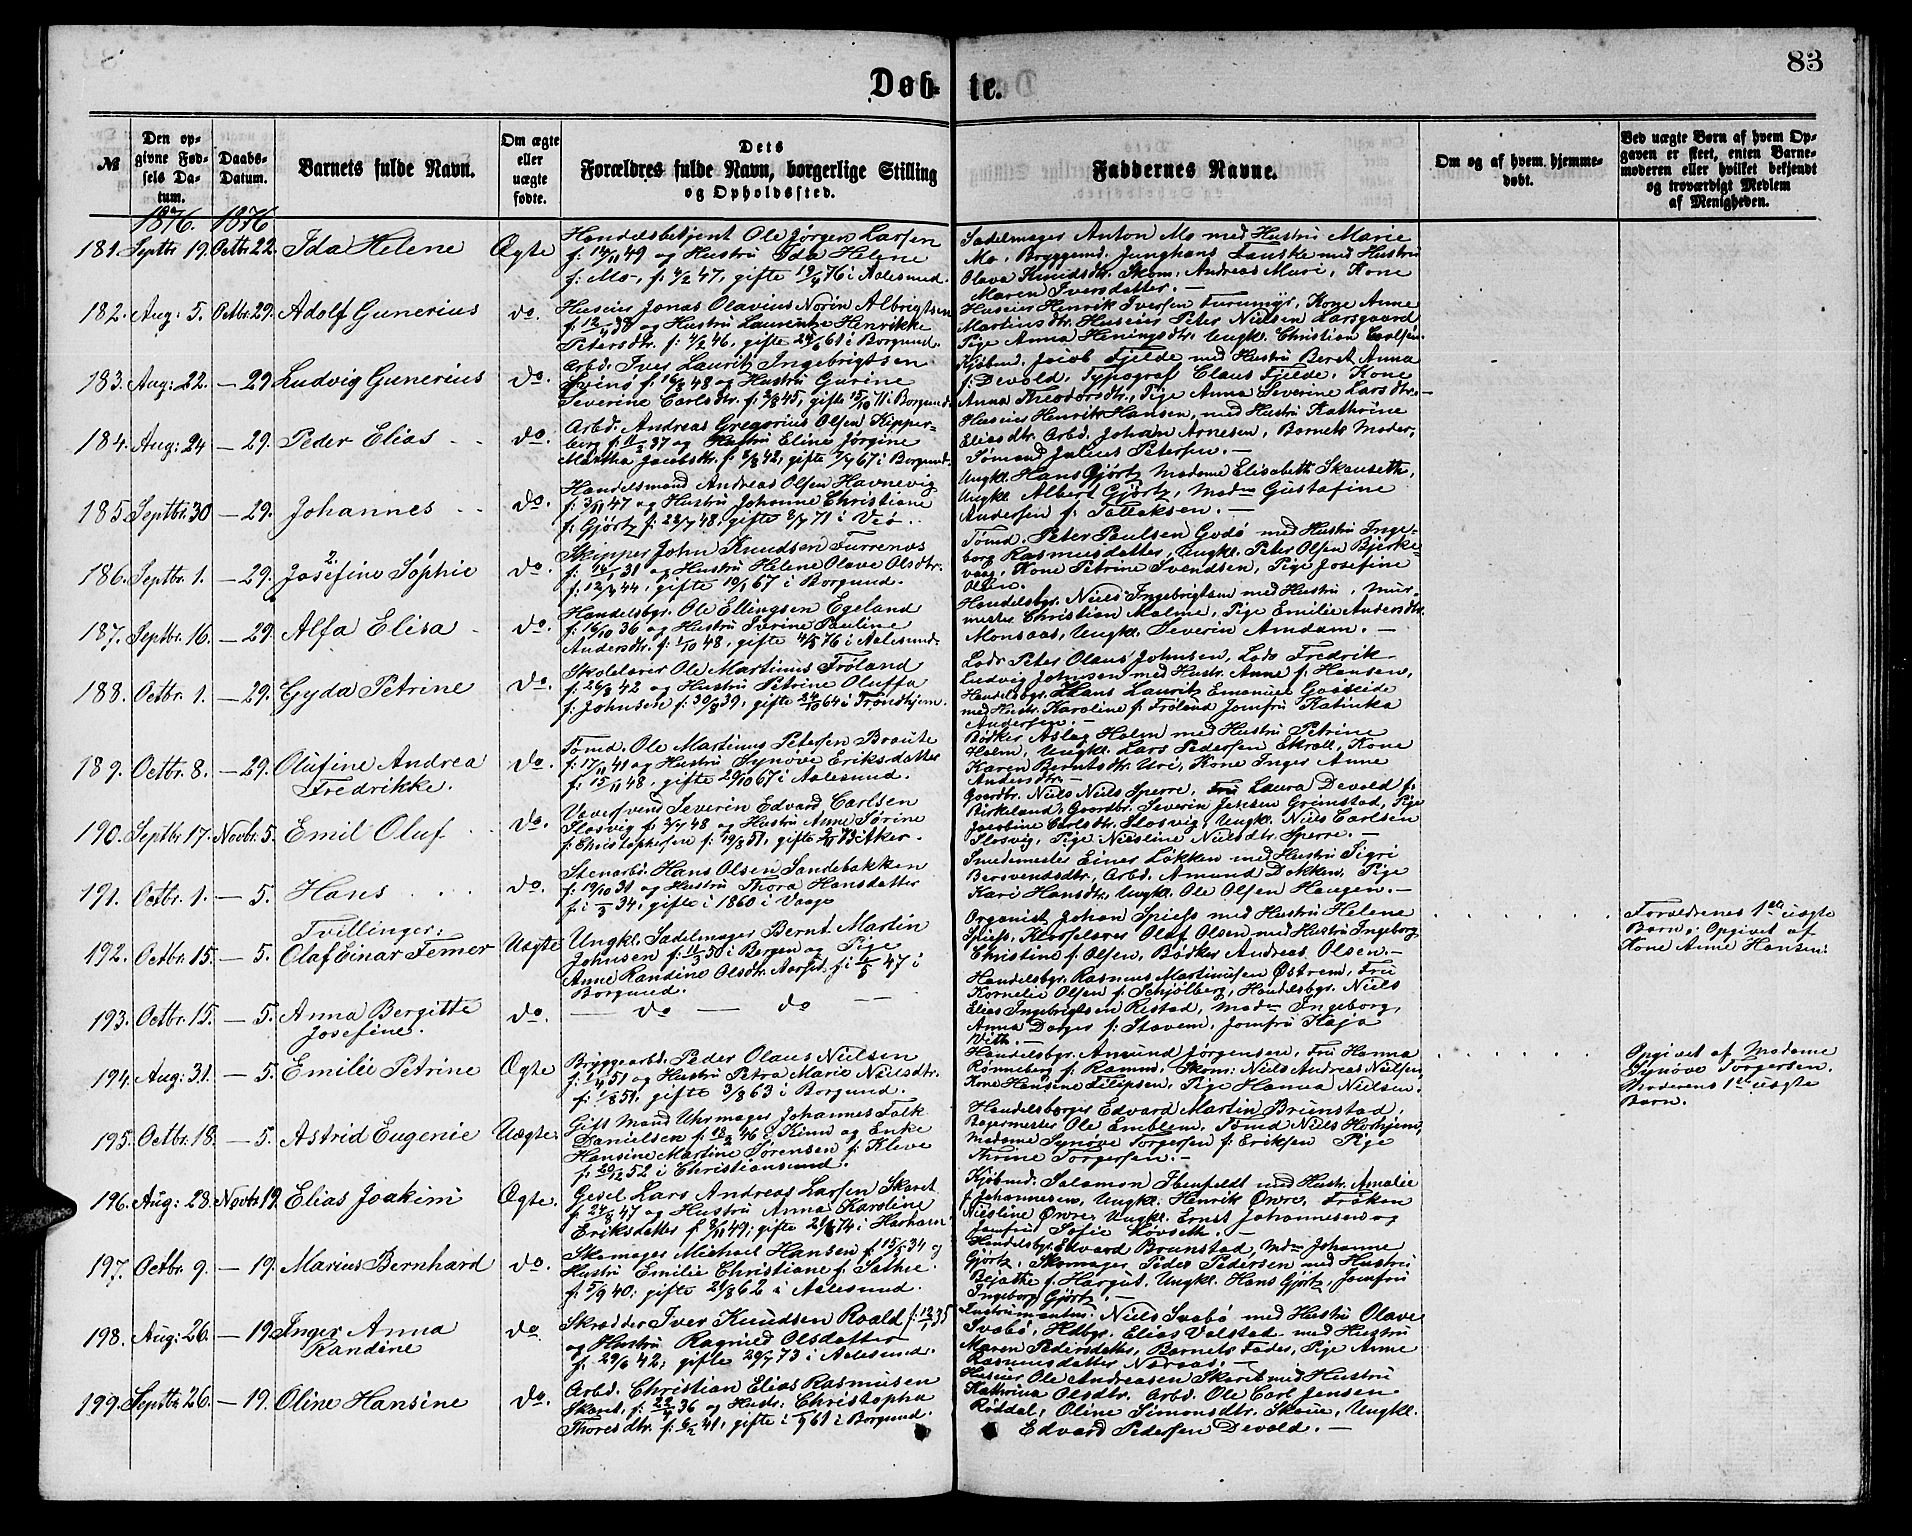 83
Døb- te.
№
Den opgivne Fødsels Datum.
Daabs-Datum.
Barnets fulde Navn.
Om ægte eller uægte fødte.
Dets Forældres fulde Navn, borgerlige Stilling og Opholdssted.
Faddernes Navne.
Om og af hvem hjemmedøbt.
Ved uægte Børn af hvem Opgaven er skeet, enten Barnemoderen eller hvilket bekjendt og troværdigt Medlem af Menigheden.
1876. 1876
181. Septbr 19. Octbr. 22. Ida Helene Ægte
Handelsbetjent Ole Jørgen Larsen
f: 14/11 49 og Hustru Ida Helene
f: Mo, f: 4/2 47, gifte 19/4 76 i Aalesund.
Sadelmager Anton Mo med Hustru Marie
Mo, Bryggemd. Junghans Fauske med Hustru
Olava Knudsdtr. Skom: Andreas Muri, Kone
Maren Iversdatter. —
182. Aug: 5. Octbr. 29. Adolf Gunerius do.
Huseier Jonas Olavius Norin Albrigtsen
f: 12/4 38 og Hustru Laurentze Henrikke
Petersdtr. f: 4/2 46, gifte 24/6 61 i Borgund.
Huseier Henrik Iversen Furumyr, Kone Anne
Martinusdtr. Huseier Peter Nielsen Larsgaard
Pige Anna Heningsdtr. Ungkl. Christian Carlsen.
183. Aug: 22. — 29 Ludvig Gunerius do.
Arbd. Iver Lauritz Ingebrigtsen
Svinø f: 16/8 48 og Hustru Gurine
Severine Carlsdtr. f: 2/8 45, gifte 15/10 71 i Borgund.
Kjøbmd. Jacob Fjelde med Hustru Beret Anna
f: Devold, Typograf Claus Fjelde, Kone
Anna Theodorsdtr., Pige Anna Severine Larsdtr. —
184. Aug: 24 — 29. Peder Elias do.
Arbd. Andreas Gregorius Olsen Kipperberg
f: 11/2 37 og Hustru Eline Jørgine
Martha Jacobsdtr. f: 2/8 42, gifte 7/7 67 i Borgund.
Huseier Henrik Hansen, med Hustru Kathrine
Eliasdtr. Arbd. Johan Arnesen, Barnets Moder,
Sømand Julius Petersen. —
185. Septbr. 30 — 29. Johannes do.
Handelsmand Andreas Olsen Havnevig
f: 3/11 47 og Hustru Johanne Christiane
f: Gjørtz f: 22/7 48, gifte 2/7 71 i Veø.
Ungkl. Hans Gjørtz, Madame Elisabeth Skauseth,
Ungkl. Albert Gjørtz, Mad. Gustafine
Andersen f: Tollaksen. —
186. Septbr. 1. — 29. Josefine Sophie do.
Skipper John Knudsen Furrenæs
f: 14/1 31 og Hustru Helene Olave Olsdtr.
f: 12/3 44, gifte 19/1 67 i Borgund.
Sømd. Peter Paulsen Godø med Hustru Ingeborg
Rasmusdatter, Ungkl. Peter Olsen Bjerkevaag,
Kone Petrine Svendsen, Pige Josefine
Olsen.
187. Septbr. 16. — 29. Alfa Elisa do.
Handelsbgr. Ole Ellingsen Egeland
f: 16/10 36 og Hustru Iverine Pauline
Andersdtr. f: 1/10 48, gifte 4/5 76 i Aalesund.
Handelsbgr. Niels Ingebrigtsen med Hustru, Murmester
Christian Malme, Pige Emilie Andersdtr.
Monsaas, Ungkl. Severin Amdam. —
188. Octbr. 1. — 29. Gyda Petrine do.
Skolelærer Ole Martinus Frøland
f: 26/3 42 og Hustru Petrine Oluffa
f: Johnsen f: 30/8 39, gifte 24/10 64 i Trondhjem.
Lods Peter Olaus Johnsen, Lods Fredrik
Ludvig Johnsen med Hustr. Anne f: Hansen,
Handelsbgr. Hans Lauritz Emanuel Gaaseide
med Hustr. Karoline f: Frøland Jomfru Katinka
Andersen. —
189. Octbr. 8. — 29. Olufine Andrea
Fredrikke. do.
Sømd. Ole Martinus Petersen Braute
f: 17/11 41 og Hustru Synøve Eriksdatter
f: 15/11 48, gifte 29/10 67 i Aalesund.
Bødker Aslag Holm med Hustru Petrine
Holm, Ungkl. Lars Pedersen Ekroll, Kone
Karen Berntsdtr. Uri, Kone Inger Anne
Andersdtr. —
190. Septbr 17. Novbr. 5. Emil Oluf do.
Væversvend Severin Edvard Carlsen
Slosvig f: 3/7 48 og Hustru Anne Sørine
f: Christophersen f: 19/8 51, gifte 2/11 73 i Aker.
Gaardbr. Niels Niels Sperre, Fru Laura Devold f:
Birkeland, Gaardbr. Severin Jensen Grimstad, Pige
Jacobine Carlsdtr. Slosvig, Ungkl. Niels Carlsen
Slosvig, Pige Nielsine Nielsdtr. Sperre. —
191. Octbr. 1. — 5. Hans do.
Stenarbd. Hans Olsen Sandebakken
f: 19/10 31 og Hustru Thora Hansdatter
f: i /3 34, gifte i 1860 i Vaage
Smedemester Einer Løkken med Hustru Sigri
Bersvendsdtr., Arbd. Amund Dokken, Pige
Kari Hansdtr. Ungkl. Ole Olsen Haugen. —
Tvillinger:
192. Octbr. 15. — 5. Olaf Einar Femer Uægte
Ungkl. Sadelmager Bernt Martin
Johnsen f: 11/3 50 i Bergen og Pige
Anne Randine Olsdtr. Aarset f: i /5 47 i
Borgund.
Organist Johan Spiess med Hustru Helene
Spiess, Kirkesanger Olaf Olsen med Hustru Ingeborg
Christine f: Olsen, Bødker Andreas Olsen. —
Forældrenes 1ste uægte
Barn; Opgivet af
Kone Anne Hansen.
193. Octbr. 15. — 5. Anna Bergitte
Josefine. do.
— do — do —
Handelsbgr. Rasmus Martinusen Østrem, Fru
Kornelie Olsen f: Schjølberg, Handelsbgr. Niels
Elias Ingebrigtsen Restad, Mad. Ingeborg
Anna Dorger f: Stavem, Jomfru Kaja
With. —
194. Aug: 31. — 5. Emilie Petrine Ægte
Bryggearbd. Peder Olaus Nielsen
f: 1/4 51 og Hustru Petra Marie Nielsdtr.
f: 1/8 51, gifte 3/8 63 i Borgund.
Handelsbgr. Amund Jørgensen, Fru Hanna
Rønneberg f: Ramm, Skom: Niels Andreas Nielsen,
Kone Hansine Filipsen, Pige Hanna Nielsen.
Opgivet af Madame
Synøve Torgersen.
Moderens 1ste uægte
Barn.
195. Octbr. 18. — 5. Astrid Eugenie Uægte.
Gift Mand Uhrmager Johannes Falk
Danielsen f: 18/2 46 i Kinn og Enke
Hansine Martine Sørensen f: Kleve
f: 20/12 52 i Christiansund.
Handelsborger Edvard Martin Brunstad,
Bagermester Ole Emblem, Sømd Niels Horhjem,
Madame Synøve Torgersen f: Eriksen Pige
Thrine Torgersen. —
196. Aug: 28. Novbr. 19. Elias Joakim Ægte.
Gesel Lars Andreas Larsen Skaret
f: 24/8 47 og Hustru Anna Karoline
Eriksdatter f: 8/11 49; gifte 21/6 74 i Harham.
Kjøbmd. Salamon Ibenfeldt med Hustr. Amalie
f: Johannesen, Ungkl. Henrik Øvre, Frøken
Nielsine Øvre, Ungkl. Ernst Johannesen og
Jomfru Sofie Løvseth. —
197. Octbr. 9. — 19. Marius Bernhard do.
Skomager Michael Hansen f: 15/5 34 og
Hustru Emilie Christiane f: Sathre
f: 5/9 40; gifte 21/8 62 i Aalesund.
Handelsbgr. Edvard Brunstad, Md. Johanne
Gjørtz, Skomager Peder Pedersen med Hustru
Bejatte f: Hargut, Ungkl. Hans Gjørtz, Jomfru
Ingeborg Gjørtz. —
198. Aug: 26. — 19. Inger Anna
Randine do.
Skrædder Iver Knudsen Roald f: 12/1 35
og Hustru Ragnild Olsdatter
f: 29/6 42; gifte 29/7 73 i Aalesund.
Instrumentm: Niels Svabø med Hustru Olave
Svabø, Hdbgr. Elias Valstat med Hustru
Maren Pedersdatter, Barnets Fader, Pige Anne
Rasmusdatter Noraas. —
199. Septbr. 26. — 19. Oline Hansine do.
Arbd. Christian Elias Rasmusen
Skaret, f: 22/4 36 og Hustr. Christopha
Thoresdtr. f: 6/2 41, gifte i /9 61 i Borgund.
Huseier Ole Andreasen Skarebø med Hustru
Kathrina Olsdtr. Arbd. Ole Carl Jensen
Røddal, Oline Simonsdtr. Skaue, Ungkl.
Edvard Pedersen Devold. —